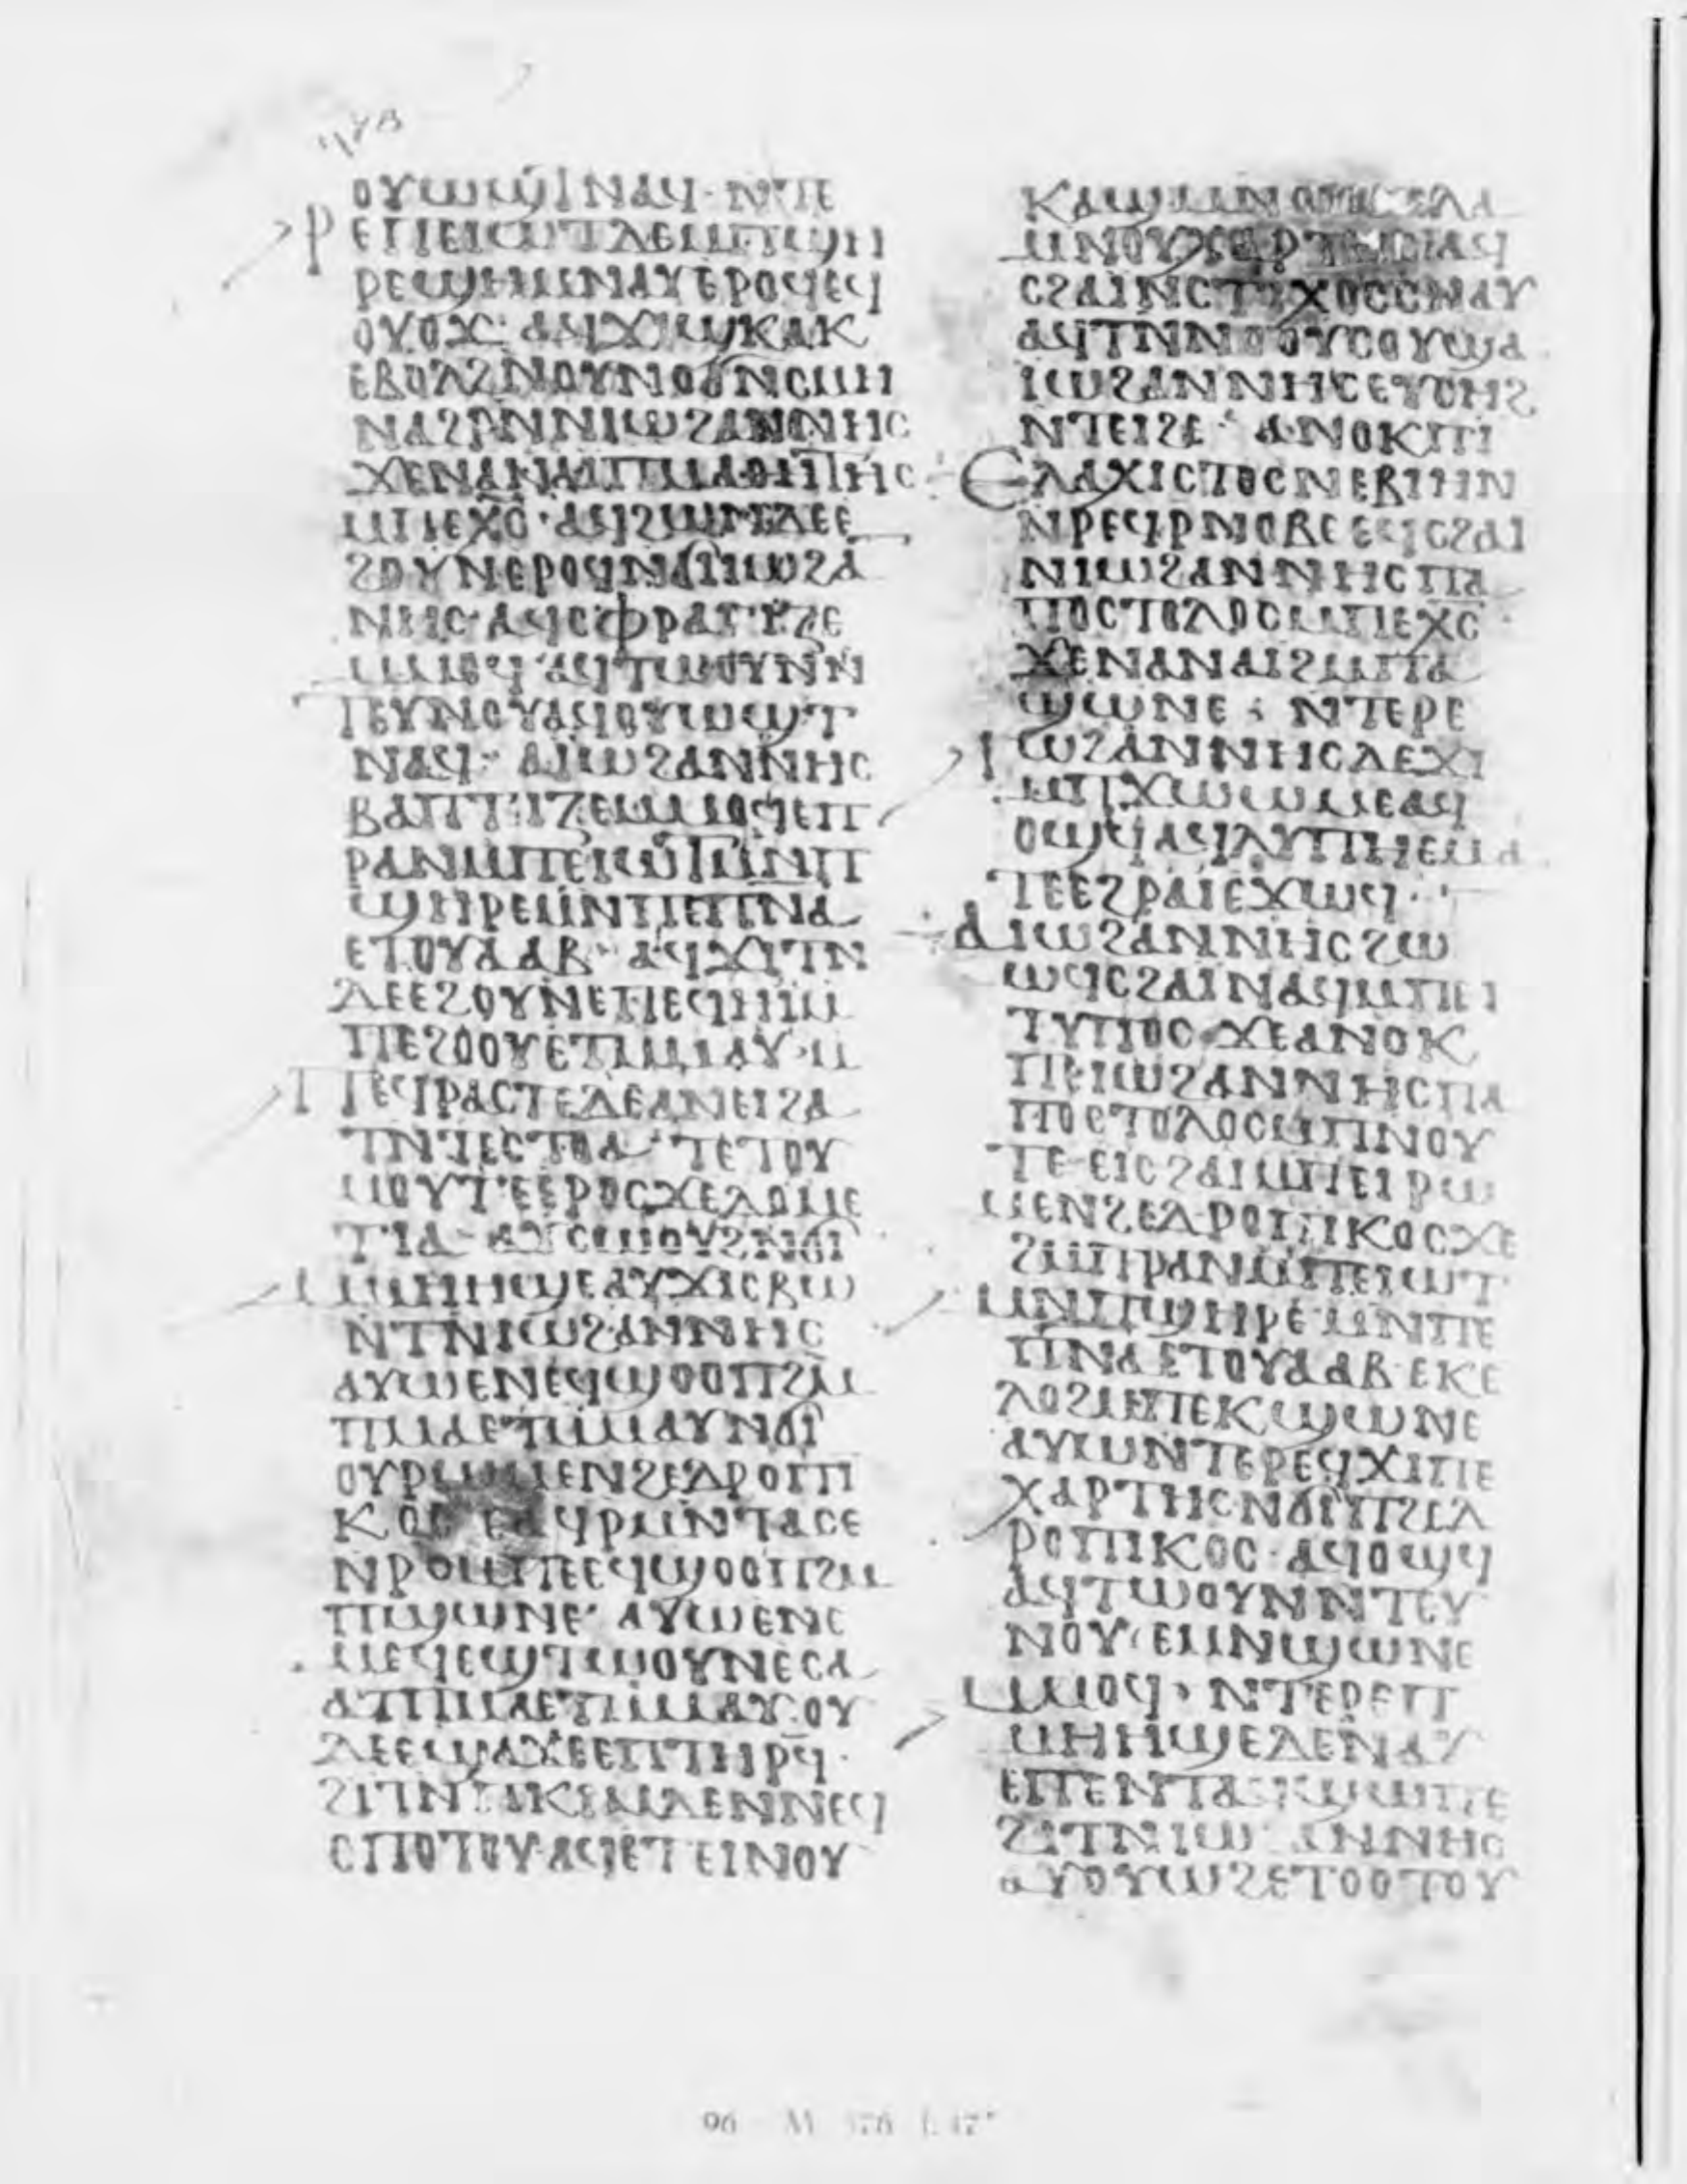 ⲟⲩⲱϣ̄ⲓⲛⲁϥ·ⲛⲧⲉ
ⲣⲉⲡⲉⲓⲱⲧⲇⲉⲙⲡϣⲏ
ⲣⲉϣⲏⲙⲛⲁⲩⲉⲣⲟϥⲉϥ
ⲟⲩⲟϫ· ⲁϥϫⲓϣⲕⲁⲕ
ⲉⲃⲟⲗϩⲛⲟⲩⲛⲟϭⲛⲥⲙⲏ
ⲛⲁϩⲣⲛⲛⲓⲱϩⲁⲛⲛⲏⲥ
ϫⲉⲛⲁⲛⲁⲓⲡⲙⲁⲑⲏⲧⲏⲥ
ⲙⲡⲉⲭ̄ⲥ̄·ⲁϥϩⲱⲛⲇⲉⲉ
ϩⲟⲩⲛⲉⲣⲟϥⲛϭⲓⲓⲱϩⲁ
ⲛⲏⲥ·ⲁϥⲥⲫⲣⲁⲅⲓⲍⲉ
ⲙⲙⲟϥ·ⲁϥⲧⲱⲟⲩⲛⲛ
ⲧⲉⲩⲛⲟⲩⲁϥⲟⲩⲱϣⲧ
ⲛⲁϥ· ⲁⲓⲱϩⲁⲛⲛⲏⲥ
ⲃⲁⲡⲧⲓⲍⲉⲙⲙⲟϥⲉⲡ
ⲣⲁⲛⲙⲡⲉⲓⲱⲧⲙⲛⲡ
ϣⲏⲣⲉⲙⲛⲡⲉⲡⲛⲁ
ⲉⲧⲟⲩⲁⲁⲃ· ⲁϥϫⲓⲧⲛ
ⲇⲉⲉϩⲟⲩⲛⲉⲡⲉϥⲏⲓⲙ
ⲡⲉϩⲟⲟⲩⲉⲧⲙⲙⲁⲩ·ⲙ
ⲡⲉϥⲣⲁⲥⲧⲉⲇⲉⲁⲛⲉⲓϩⲁ
ⲧⲛⲧⲉⲥⲧⲟⲁ· ⲧⲉⲧⲟⲩ
ⲙⲟⲩⲧⲉⲉⲣⲟⲥϫⲉⲇⲟⲙⲉ
ⲧⲓⲁ· ⲁⲩⲥⲱⲟⲩϩⲛϭⲓ
ⲙⲙⲏⲏϣⲉⲁⲩϫⲓⲥⲃⲱ
ⲛⲧⲛⲓⲱϩⲁⲛⲛⲏⲥ
ⲁⲩⲱⲉⲛⲉϥϣⲟⲟⲡϩⲙ
ⲡⲙⲁⲉⲧⲙⲙⲁⲩⲛϭⲓ
ⲟⲩⲣⲱⲙⲉⲛϩⲉⲇⲣⲟⲡⲓ
ⲕⲟⲥ ⲉⲁϥⲣⲙⲛⲧⲁⲥⲉ
ⲛⲣⲟⲙⲡⲉⲉϥϣⲟⲟⲡϩⲙ
ⲡϣⲱⲛⲉ· ⲁⲩⲱⲉⲛⲉ
ⲙⲉϥⲉϣⲧⲱⲟⲩⲛⲉⲥⲁ
ⲁⲡⲙⲁⲉⲧⲙⲙⲁⲩ·ⲟⲩ
ⲇⲉⲉϣⲁϫⲉⲉⲡⲧⲏⲣϥ·
ϩⲓⲧⲛ
ⲥⲡⲟⲧⲟⲩ·ⲁϥⲉⲧⲉⲓⲛⲟⲩ
ⲕⲁϣⲙⲛⲟⲩⲙⲉⲗⲁ
ⲙⲛⲟⲩⲭⲉⲣⲧⲏⲥⲁϥ
ⲥϩⲁⲓⲛⲥⲧⲩⲭⲟⲥⲥⲛⲁⲩ
ⲁϥⲧⲛⲛⲟⲟⲩⲥⲟⲩϣⲁ
ⲓⲱϩⲁⲛⲛⲏⲥⲉⲩⲥⲏϩ
ⲛⲧⲉⲓϩⲉ· ⲁⲛⲟⲕⲡⲓ
ⲉⲗⲁⲭⲓⲥⲧⲟⲥⲛⲉⲃⲓⲏⲛ
ⲛⲣⲉϥⲣⲛⲟⲃⲉⲉⲉⲓⲥϩⲁⲓ
ⲛⲓⲱϩⲁⲛⲛⲏⲥⲡⲁ
ⲡⲟⲥⲧⲟⲗⲟⲥⲙⲡⲉⲭ̄ⲥ̄·
ϫⲉⲛⲁⲛⲁⲓϩⲙⲡⲁ
ϣⲱⲛⲉ: ⲛⲧⲉⲣⲉ
ⲓⲱϩⲁⲛⲛⲏⲥⲇⲉϫⲓ
ⲙⲡϫⲱⲱⲙⲉⲁϥ
ⲟϣϥⲁϥⲗⲩⲡⲏⲉⲙⲁ
ⲧⲉⲉϩⲣⲁⲓⲉϫⲱϥ·
ⲁⲓⲱϩⲁⲛⲛⲏⲥϩⲱ
ⲱϥⲥϩⲁⲓⲛⲁϥⲙⲡⲉⲓ
ⲧⲩⲡⲟⲥ·ϫⲉⲁⲛⲟⲕ
ⲡⲉⲓⲱϩⲁⲛⲛⲏⲥⲡⲁ
ⲡⲟⲥⲧⲟⲗⲟⲥⲙⲡⲛⲟⲩ
ⲧⲉ·ⲉⲓⲥϩⲁⲓⲙⲡⲉⲓⲣⲱ
ⲙⲉⲛϩⲉⲇⲣⲟⲡⲓⲕⲟⲥϫⲉ
ϩⲙⲡⲣⲁⲛⲙⲡⲉⲓⲱⲧ
ⲙⲛⲡϣⲏⲣⲉ·ⲙⲛⲡⲉ
ⲡⲛⲁⲉⲧⲟⲩⲁⲁⲃ·ⲉⲕⲉ
ⲗⲟϩⲙⲡⲉⲕϣⲱⲛⲉ
ⲁⲩⲱⲛⲧⲉⲣⲉϥϫⲓⲡⲉ
ⲭⲁⲣⲧⲏⲥ·ⲛϭⲓⲡϩⲉⲇ
ⲣⲟⲡⲓⲕⲟⲥ·ⲁϥⲟϣϥ
ⲁϥⲧⲱⲟⲩⲛⲛⲧⲉⲩ
ⲛⲟⲩ·ⲉⲙⲛϣⲱⲛⲉ
ⲙⲙⲟϥ· ⲛⲧⲉⲣⲉⲡ
ⲙⲏⲏϣⲉⲇⲉⲛⲁⲩ
ⲉⲡⲉⲛⲧⲁϥϣⲱⲡⲉ
ϩⲓⲧⲛⲓⲱϩⲁⲛⲛⲏⲥ
ⲁⲩⲟⲩⲱϩⲉⲧⲟⲟⲧⲟⲩ